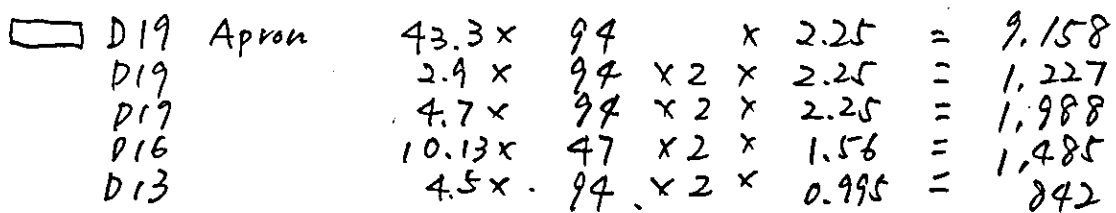 D19 Apron 43.3 × 94 × 2.25 = 9,158
D19 2.9 × 94 × 2 × 2.25 = 1,227
D19 4.7 × 94 × 2 × 2.25 = 1,988
D16 10.13 × 47 × 2 × 1.56 = 1,485
D13 4.5 × 94 × 2 × 0.995 = 842